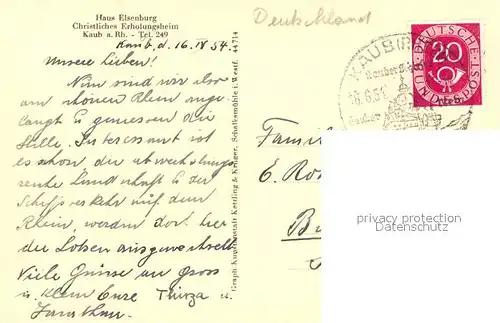 Haus Elsenburg
Christliches Erholungsheim
Kaub a. Rh. - Tel. 249
Kaub, d. 16. IV 54.
Unsere Lieben!
Nun sind wir also
am schönen Rhein ange
langt u geniessen die
Stille. Interessant ist
es schon die abwechslungs
reiche Landschaft u der
Schiffsverkehr auf dem
Rhein, werden doch hier
die Lotsen ausgewechselt
Viele Grüsse an gross
u. klein Eure Thirza u.
Jonathan.
Graph. Kunstanstalt Kettling & Krüger, Schalksmühle i. Westf. 44714
Deutschland
KAUB
DEUTSCHE BUNDESPOST
20
Famil
E. Ros
privacy protection
Datenschutz